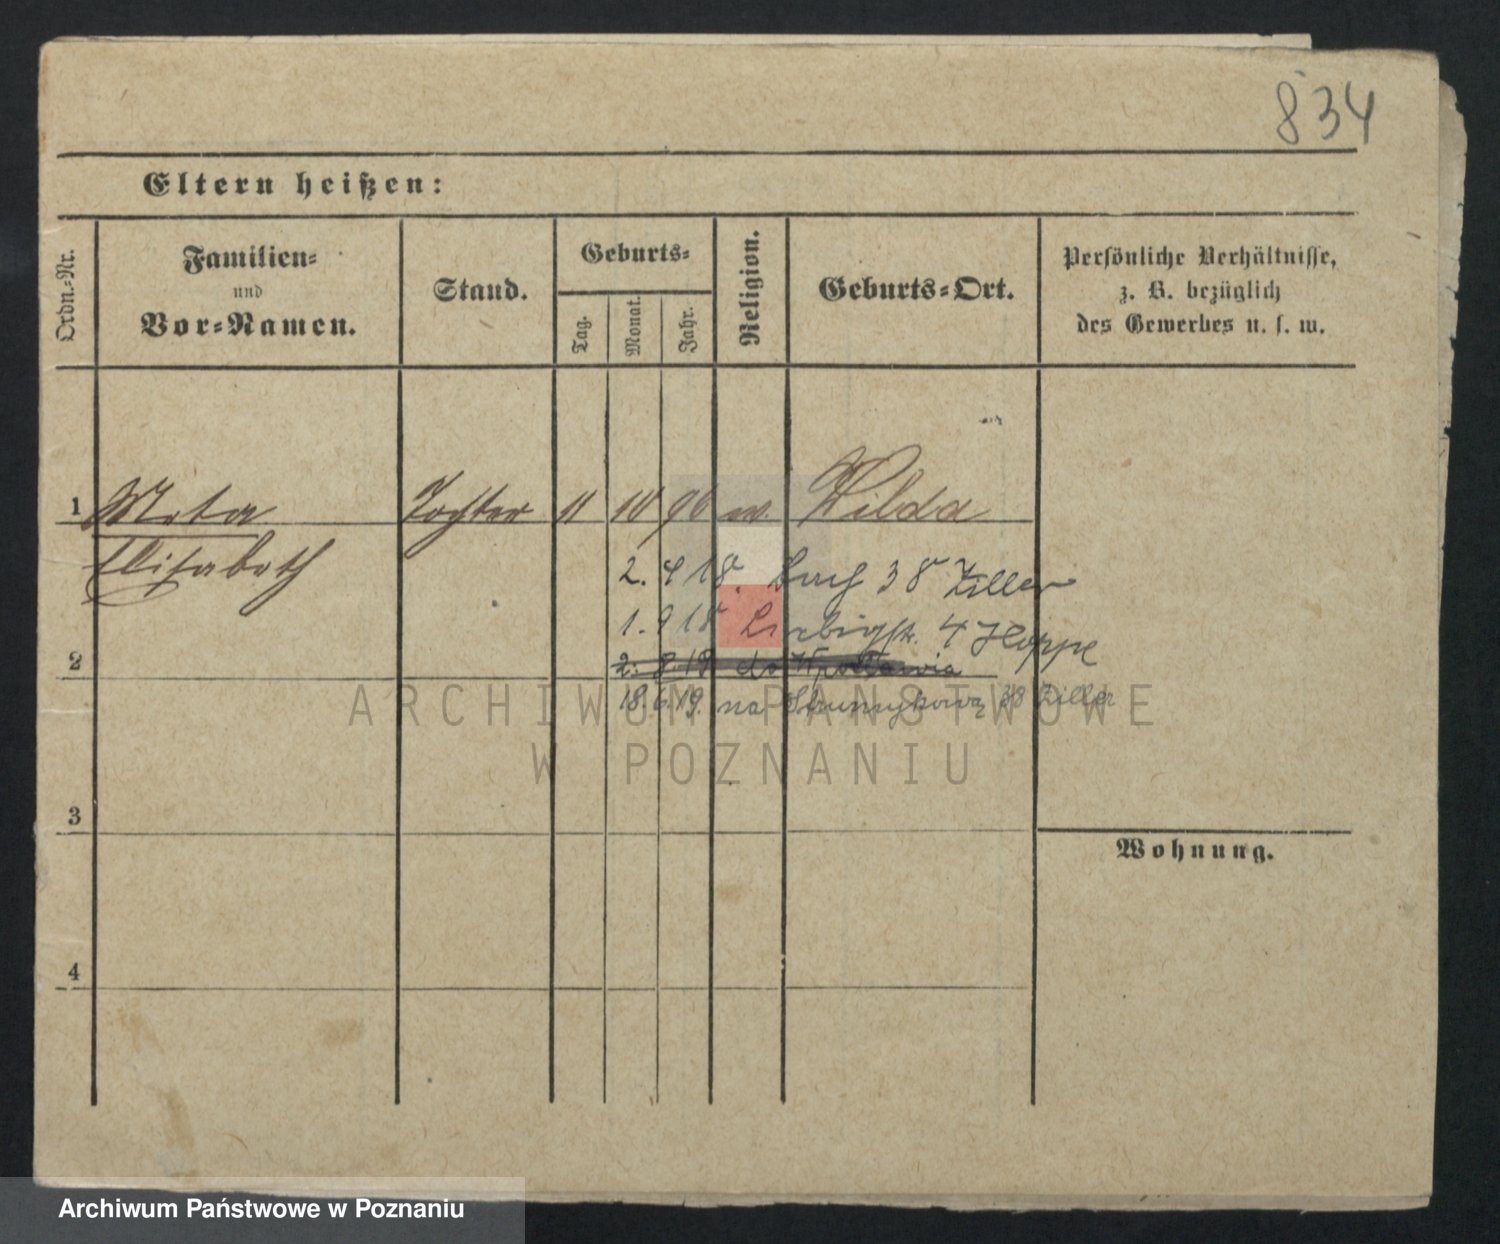 834
Eltern heißen:
Ordn.-Nr.
Familien-
und
Vor-Namen.
Stand.
Geburts-
Tag.
Monat.
Jahr.
Religion.
Geburts-Ort.
Persönliche Verhältnisse,
z. B. bezüglich
des Gewerbes u. s. w.
1 Meta Tochter 11 10 96 ev. Wilda
Elisabeth
2. 4 18. 38 Ziller
1. 9 18 Liebigstr. 4 Hoppe
2
2. 8. 19 do Wrocławia
18. 6. 19. na Strumykową 38 Ziller
ARCHIWUM PAŃSTWOWE
W POZNANIU
3
Wohnung.
4
Archiwum Państwowe w Poznaniu